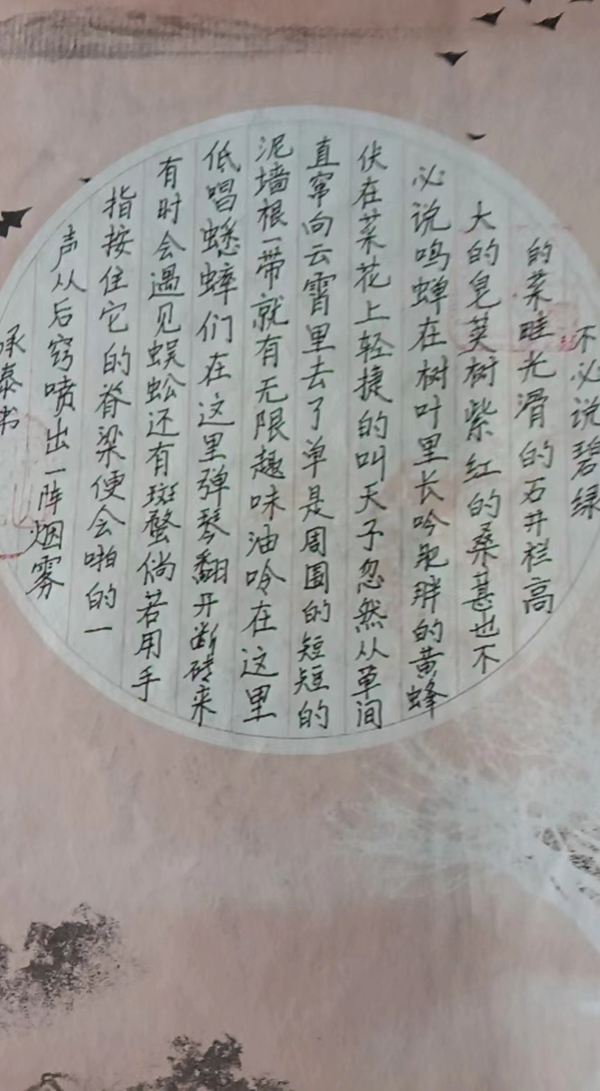 不必说碧绿
的菜畦光滑的石井栏高
大的皂荚树紫红的桑葚也不
必说鸣蝉在树叶里长吟肥胖的黄蜂
伏在菜花上轻捷的叫天子忽然从草间
直窜向云霄里去了单是周围的短短的
泥墙根一带就有无限趣味油呤在这里
低唱蟋蟀们在这里弹琴翻开断砖来
有时会遇见蜈蚣还有斑蝥倘若用手
指按住它的脊梁便会啪的一
声从后窍喷出一阵烟雾
承泰书